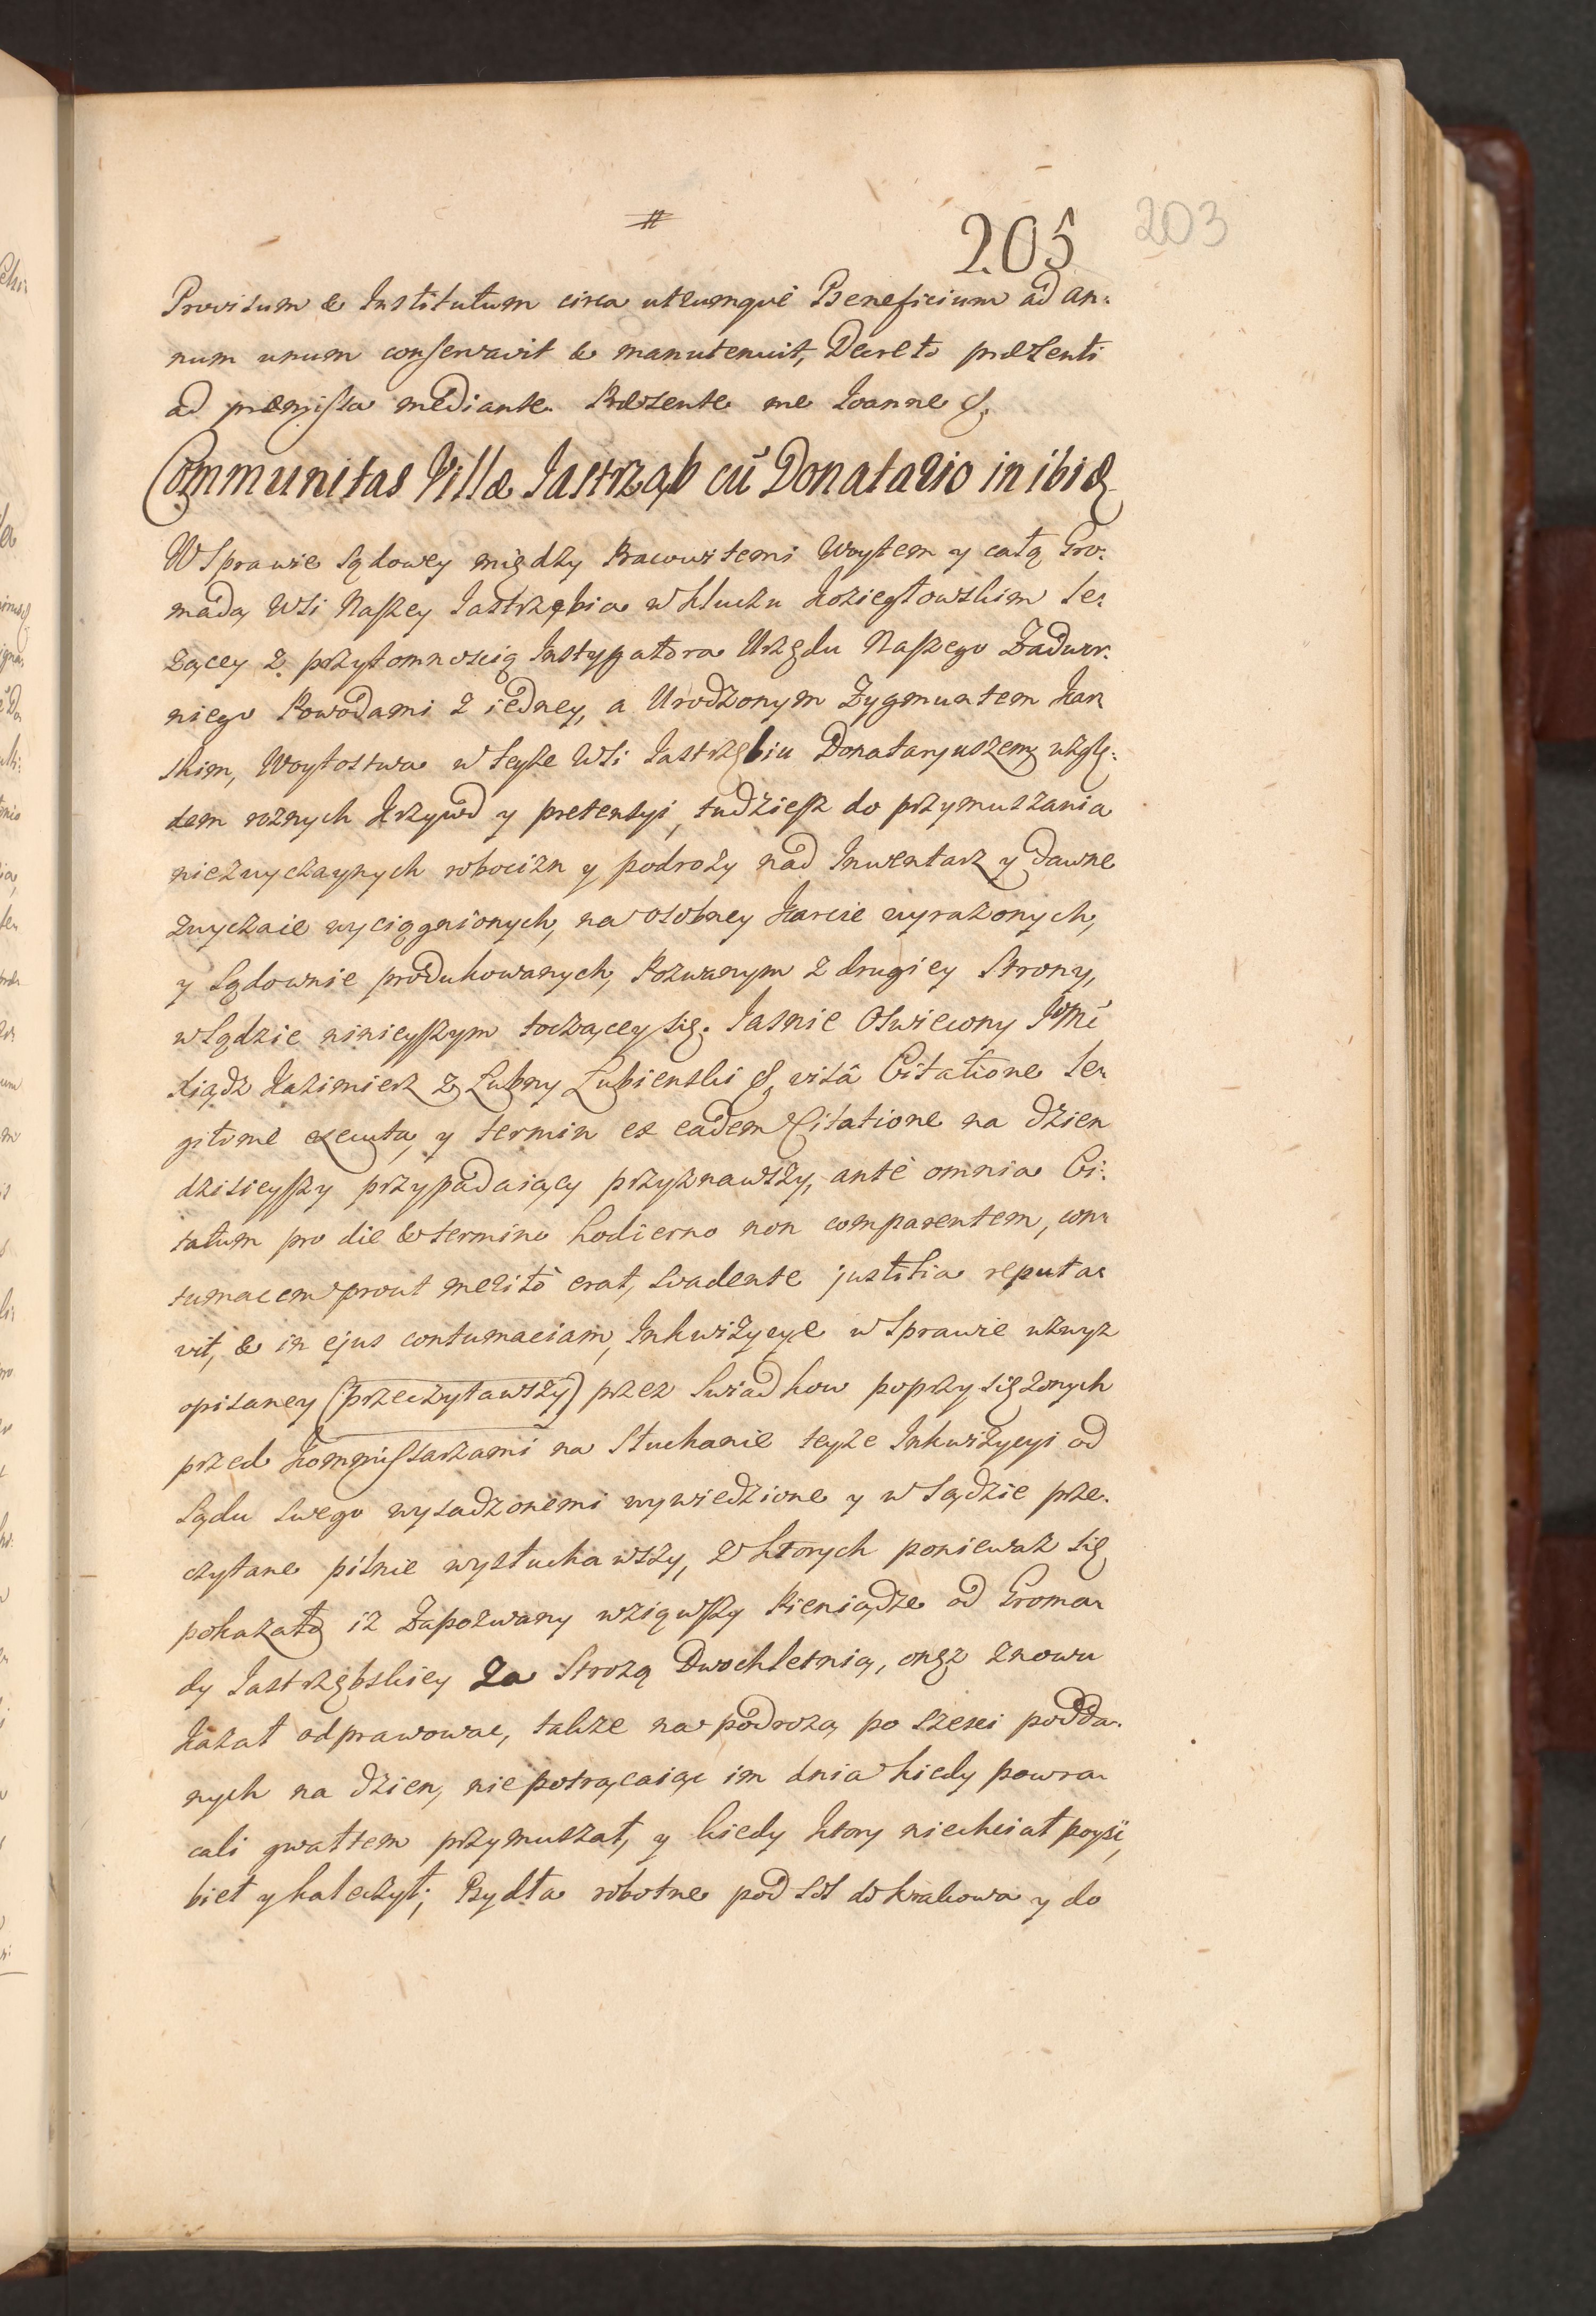 #
205 203
Provisum & Institutum circa utrumque Beneficium ad an:
num unum conservavit & manutenuit, Decreto præsenti
ad præmissa mediante. Præsente me Joanne &.
Communitas Villæ Jastrząb cū Donatario in ibid.
W Sprawie sądowey między Pracowitemi Woytem y całą Gro:
madą Wsi Naszey Jastrzębia w kluczu Koziegłowskim le:
żącey z przytomnoscią Instygatora Urzędu Naszego Zadwor:
niego Powodami z iedney, a Urodzonym Zygmuntem Kar:
skim, Woytostwa w teyże Wsi Jastrzębiu Donataryuszem, wzglę:
dem roznych Krzywd y pretensyi, tudziesz do przymuszania
niezwyczaynych robocizn y podroży nad Inwentarz y dawne
zwyczaie wyciągnionych, na osobney karcie wyrażonych,
y Sądownie produkowanych, Pozwanym z drugiey Strony,
w Sądzie ninieyszym toczącey się. Jasnie Oswiecony Jmć
Xiądz Kazimierz z Łubny Łubienski &, visâ Citatione le:
gitimè executa, y termin ex eadem Citatione na dzien
dzisieyszy przypadaiący przyznawszy, antè omnia Ci:
tatum pro die & termino hodierno non comparentem, con:
tumacem prout meritò erat, svadente justitia reputa:
vit, & in ejus contumaciam, Inkwizycye w Sprawie wzwyz
opisaney (przeczytawszy) przez Swiadkow poprzysiężonych
przed Kommissarzami na słuchanie teyże Inkwizycyi od
Sądu swego wysadzonemi wywiedzione y w Sądzie prze:
czytane pilnie wysłuchawszy, z ktorych ponieważ się
pokazało iż Zapozwany wziąwszy Pieniądze od Groma:
dy Jastrzębskiey za Strożą Dwochletnią, onęż znowu
kazał odprawować, także na podrożą po szesci podda:
nych na dzien, niepotrącaiąc im dnia kiedy powra:
cali gwałtem przymuszał, y kiedy ktory niechciał poysć,
bieł y kaleczył; Bydła robotne pod sol do Krakowa y do